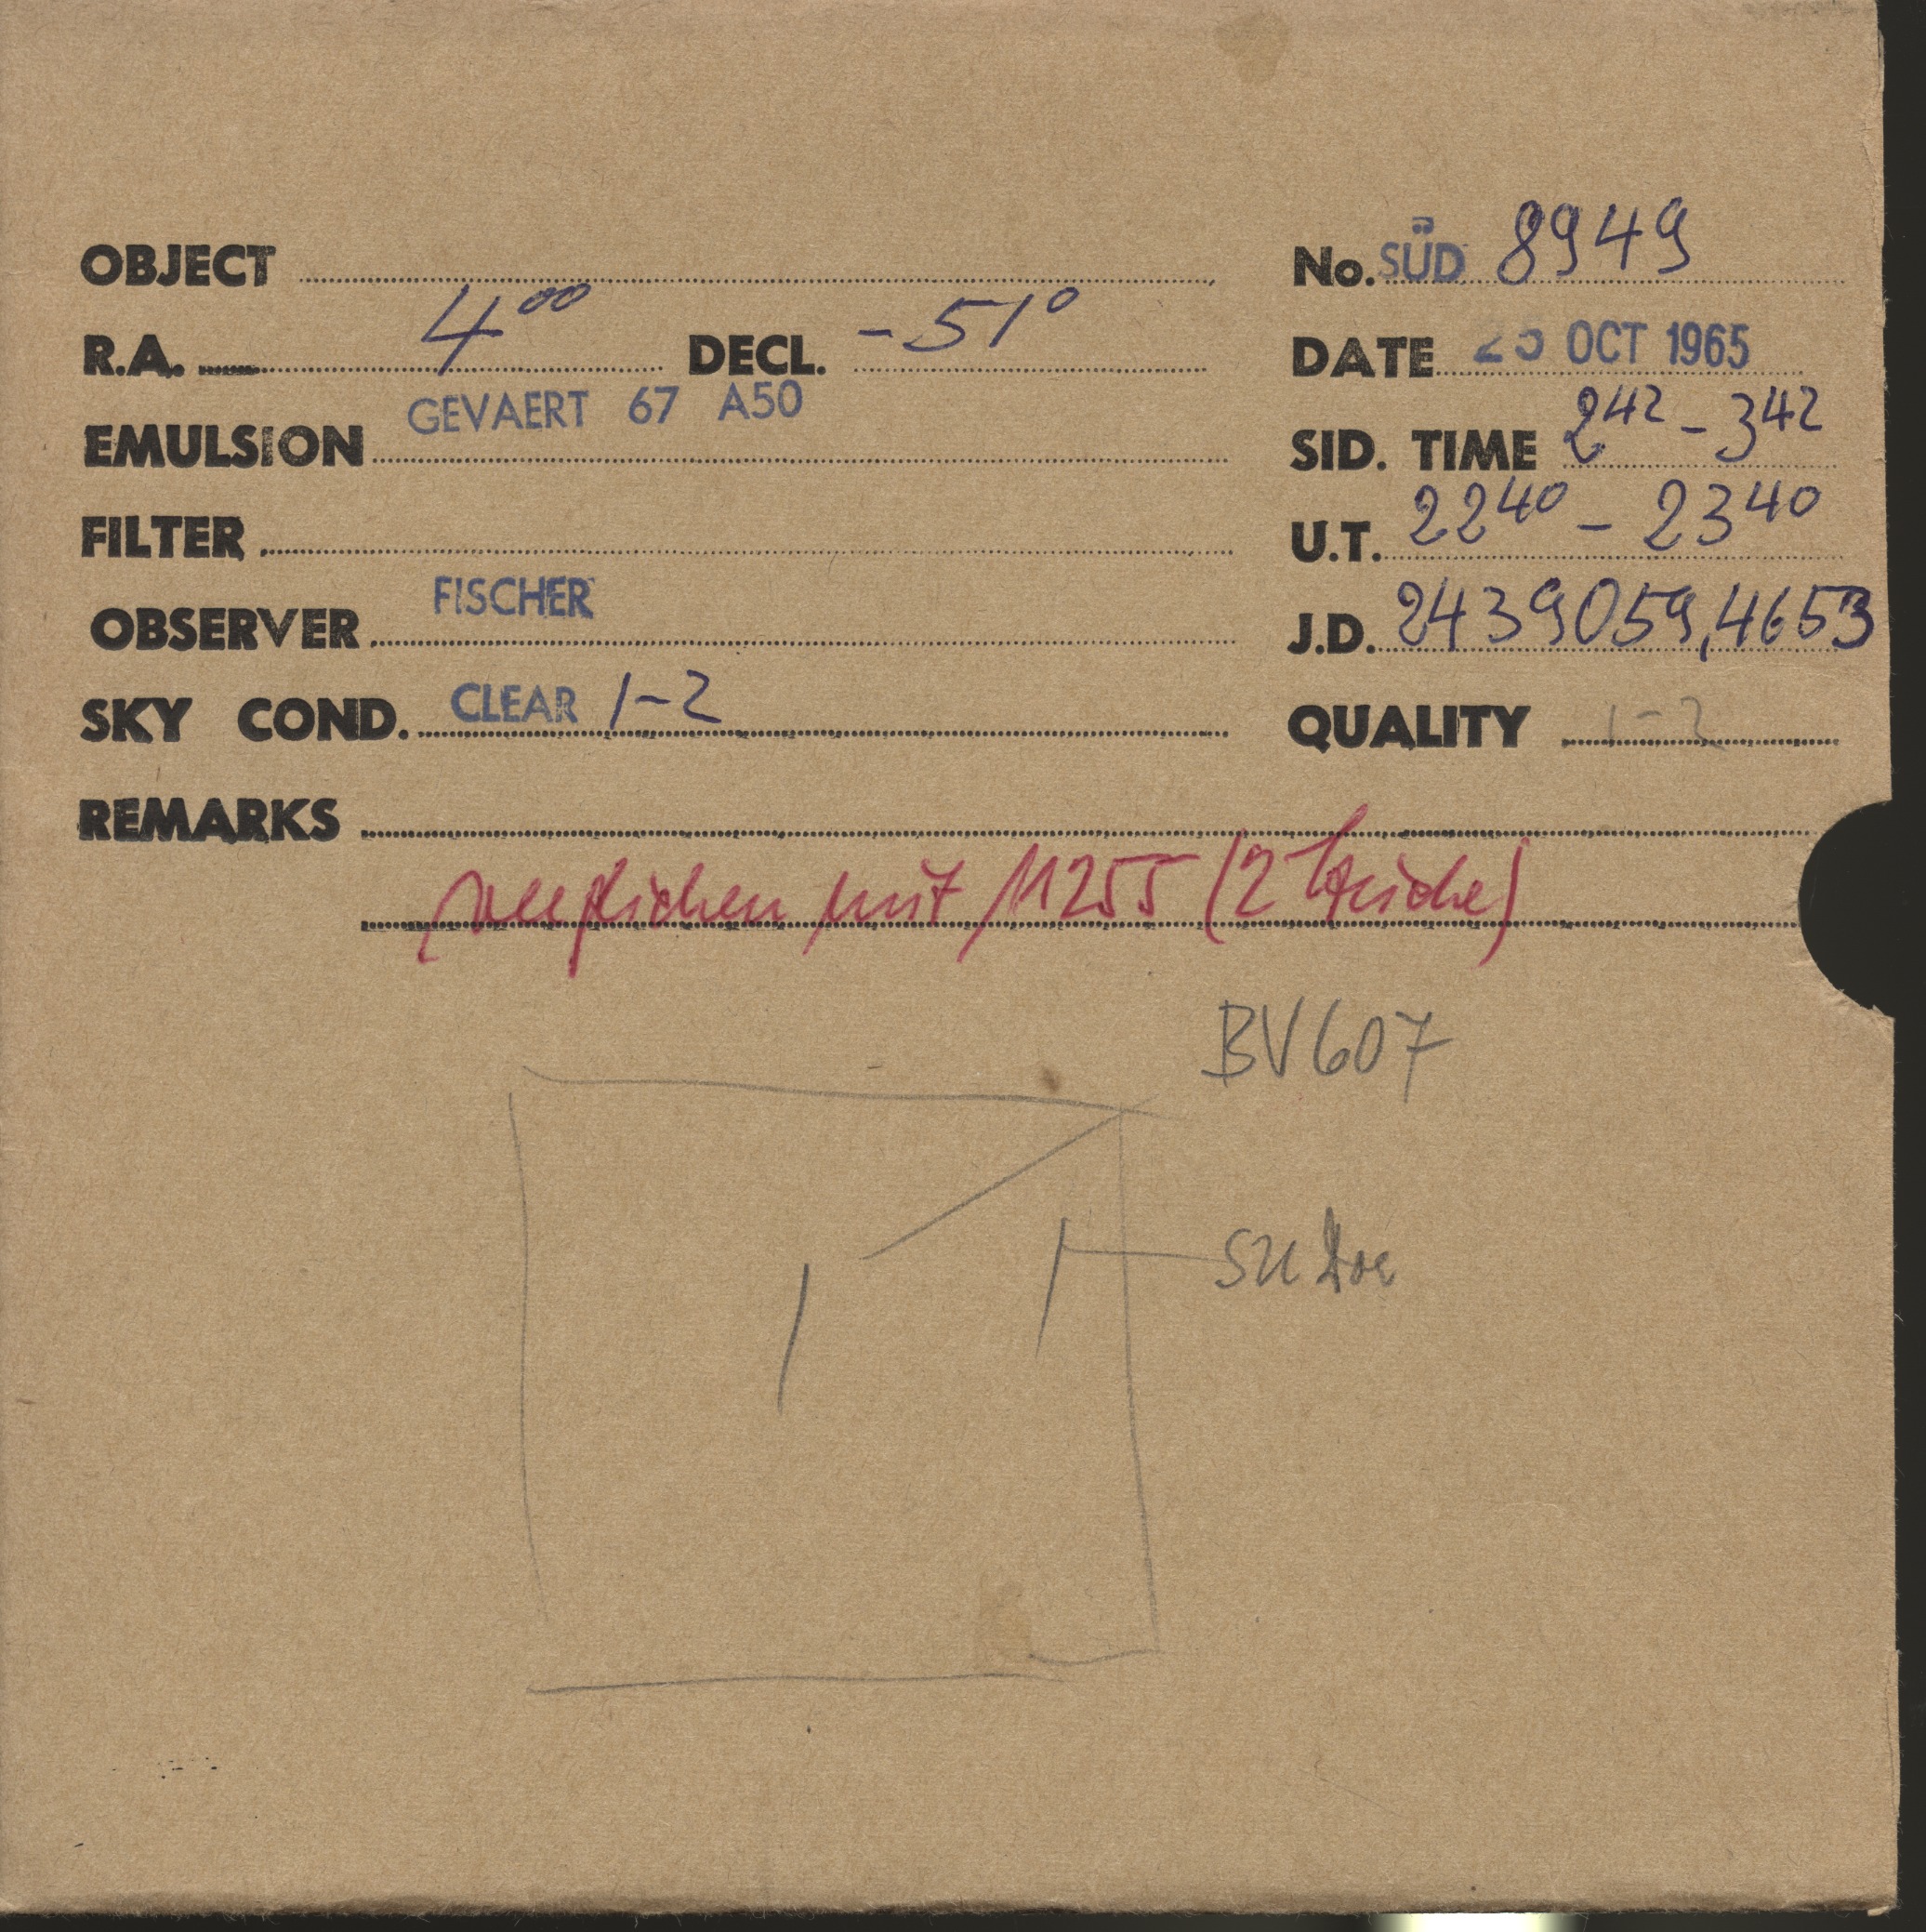 OBJECT
No. SÜD 8949
R.A. 4⁰⁰ DECL. -51°
DATE 25 OCT 1965
EMULSION GEVAERT 67 A50
SID. TIME 2⁴² - 3⁴²
FILTER
U.T. 22⁴⁰ - 23⁴⁰
OBSERVER FISCHER
J.D. 2439059,4653
SKY COND. CLEAR 1-2
QUALITY 1-2
REMARKS
verglichen mit 11255 (2 Striche)
BV 607
SU